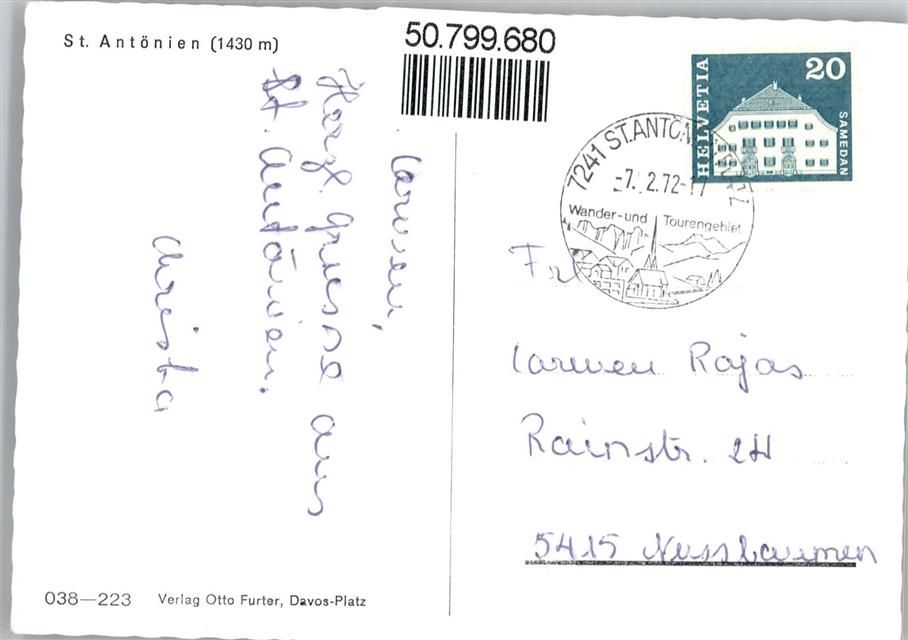 St. Antönien (1430 m)
50.799.680
HELVETIA
20
SAMEDAN
7241 ST.ANTÖN
-7. 2.72-17
Wander-und Tourengebiet
Carmen,
Herzl. Griesse aus
St. Antönien.
Christa
Frl
Carmen Rojas
Rainstr. 2H
5415 Nussbaumen
038—223 Verlag Otto Furter, Davos-Platz